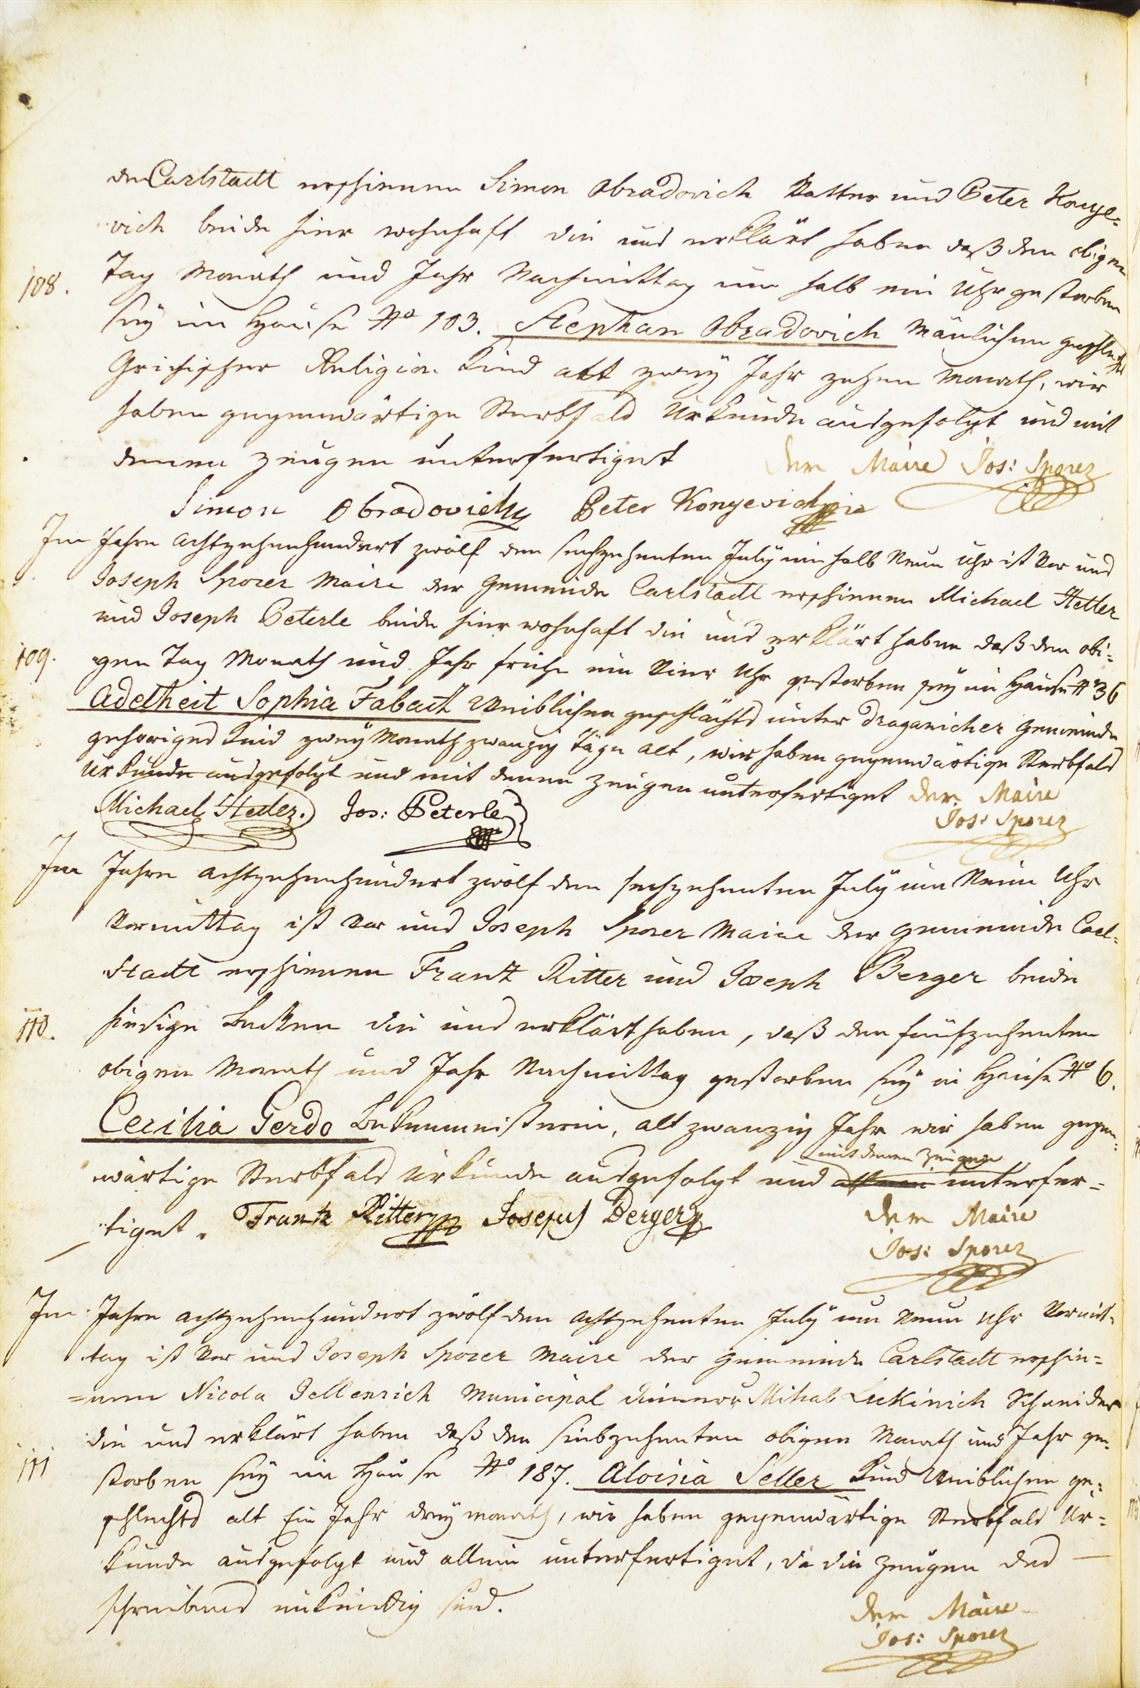 de Carlstadt erschienen Simon Obradovich Vatter und Peter Konye-
vich beide hier wohnhaft die uns erklärt haben daß den obigen
108. Tag Monath und Jahr Nachmittag um halb ein Uhr gestorben
sey im Hause No 103. Stephan Obradovich Mänlichen geschlechts
Grichischer Religion Kind alt zwey Jahr zehen Monath, wir
haben gegenwärtige Sterbfals Urkunde ausgefolgt und mit
denen Zeugen unterfertiget der Maire Jos: Sporer
Simon Obradovich Peter Konyevich
Im Jahre achtzehenhundert zwölf den sechzehenten July um halb Neun Uhr ist vor uns
Joseph Sporer Maire der Gemeinde Carlstadt erschienen Michael Stetler
und Joseph Peterle beide hier wohnhaft die uns erklärt haben daß den obi-
109. gen Tag Monath und Jahr frühe um Vier Uhr gestorben sey im Hause No 36
Adelheit Sophia Fabach Weiblichen geschlächts unter Draganicher Gemeinde
gehöriges Kind zwey Monath zwanzig Täge alt, wir haben gegenwärtige Sterbfals
Urkunde ausgefolgt und mit denen Zeugen unterfertiget der Maire
Michael Stetler. Jos: Peterle Jos: Sporer
Im Jahre achtzehenhundert zwölf den sechzehenten July um Neun Uhr
Vormittag ist vor uns Joseph Sporer Maire der Gemeinde Carl-
stadt erschienen Frantz Ritter und Joseph Berger beide
110. hiesige Becken die uns erklärt haben, daß den fünfzehenten
obigen Monath und Jahr Nachmittag gestorben sey in Hause No 6.
Cecilia Gerdo Bekenmeisterin, alt zwanzig Jahr wir haben gegen-
mit denen Zeugen
wärtige Sterbfals Urkunde ausgefolgt und allein unterfer-
tiget. Frantz Ritter Josephus Berger der Maire
Jos: Sporer
Im Jahre achtzehenhundert zwölf den achtzehenten July um Neun Uhr Vormit-
tag ist vor uns Joseph Sporer Maire der Gemeinde Carlstadt erschie-
=nen Nicola Jellenrich Municipal diener u Mihal Luckinich Schneider
die uns erklärt haben daß den siebzehenten obigen Monath und Jahr ge-
111 storben sey im Hause No 187. Aloisia Seller Kind Weiblichen ge-
schlechts alt Ein Jahr drey monath, wir haben gegenwärtige Sterbfals Ur-
kunde ausgefolgt und allein unterfertiget, da die Zeugen des
schreibens unkündig sind.
der Maire
Jos: Sporer